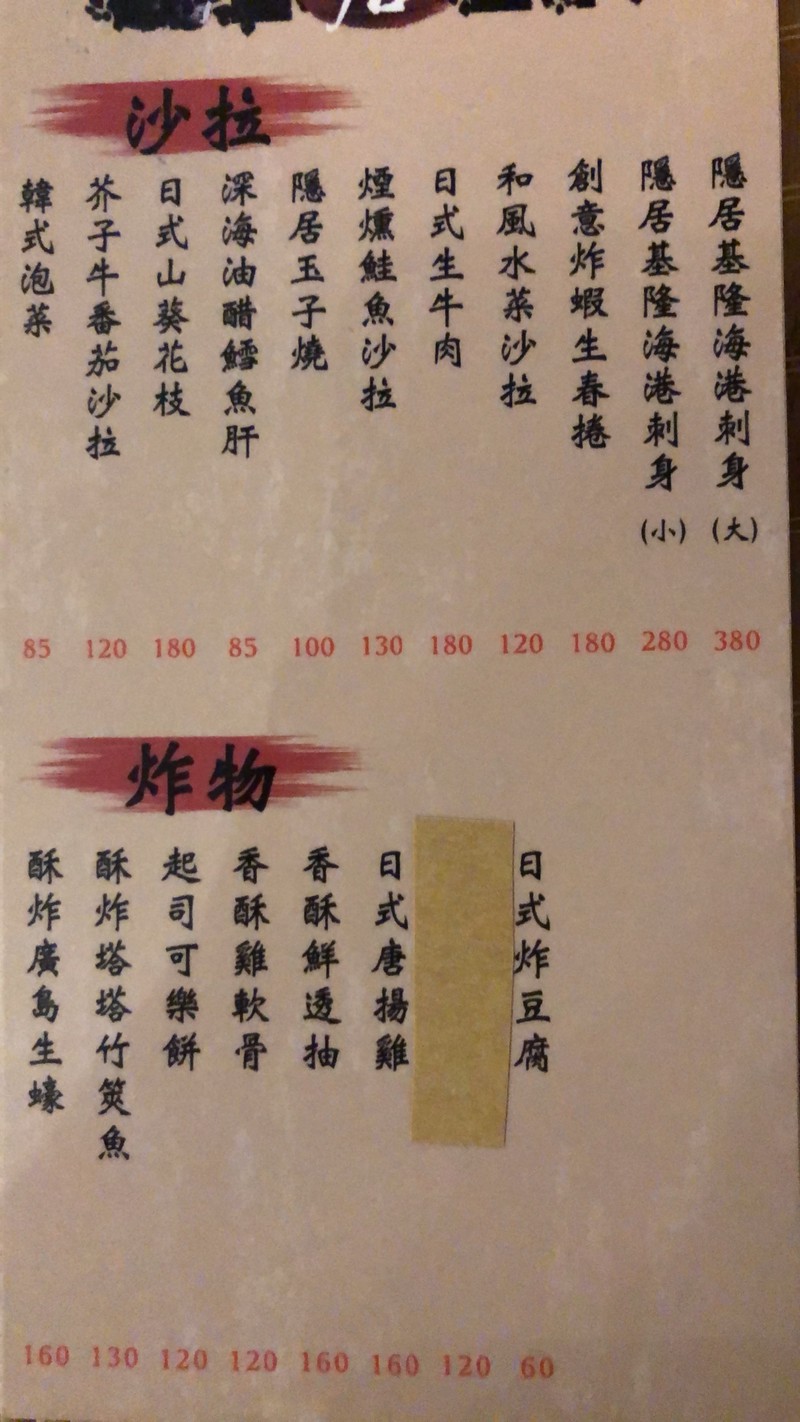 沙拉
隱居基隆海港刺身(大)
隱居基隆海港刺身(小)
創意炸蝦生春捲
和風水菜沙拉
日式生牛肉
煙燻鮭魚沙拉
隱居玉子燒
深海油醋鱈魚肝
日式山葵花枝
芥子牛番茄沙拉
韓式泡菜
85 120 180 85 100 130 180 120 180 280 380
炸物
日式炸豆腐
日式唐揚雞
香酥鮮透抽
香酥雞軟骨
起司可樂餅
酥炸塔塔竹筴魚
酥炸廣島生蠔
160 130 120 120 160 160 120 60